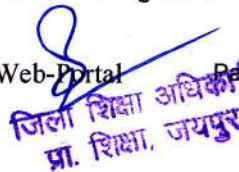 Web-Portal Pa
जिला शिक्षा अधिकारी
प्रा. शिक्षा, जयपुर